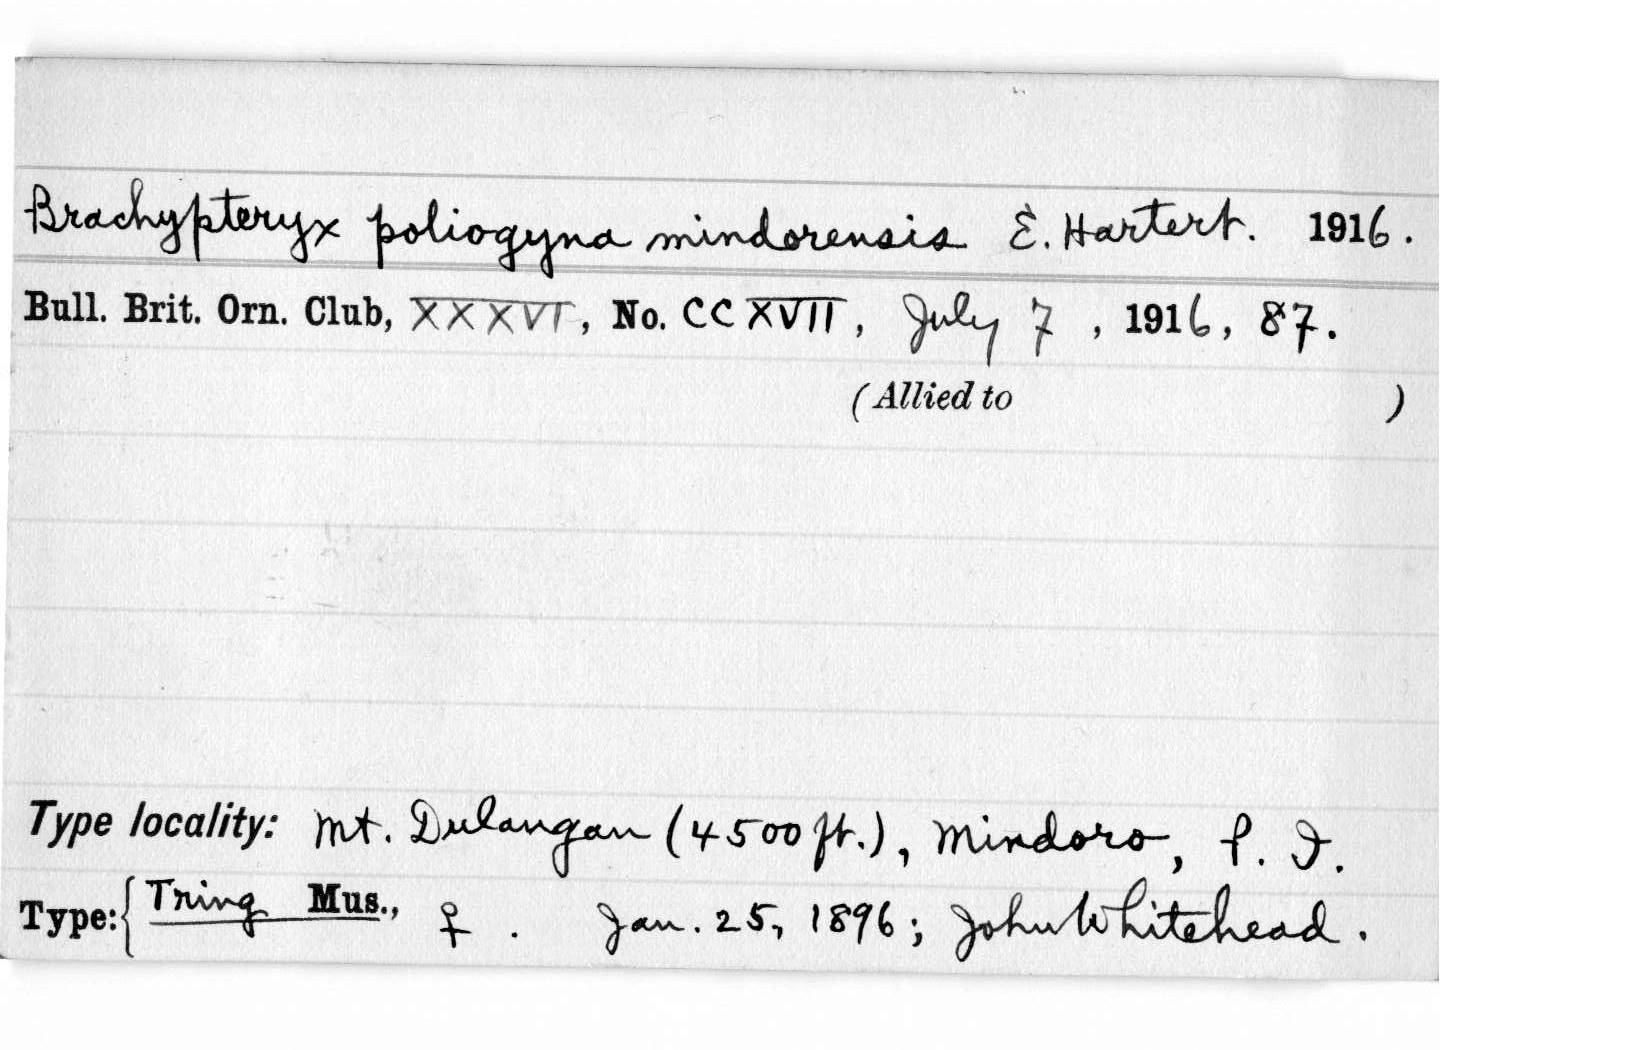 Brachypteryx poliogyna mindorensis E. Hartert. 1916.
Bull. Brit. Orn. Club, XXXVI, No. CCXVII, July 7, 1916, 87.
(Allied to )
Type locality: Mt. Dulangan (4500 ft.), Mindoro, P. I.
Type: { Tring Mus., ♀. Jan. 25, 1896; John Whitehead.